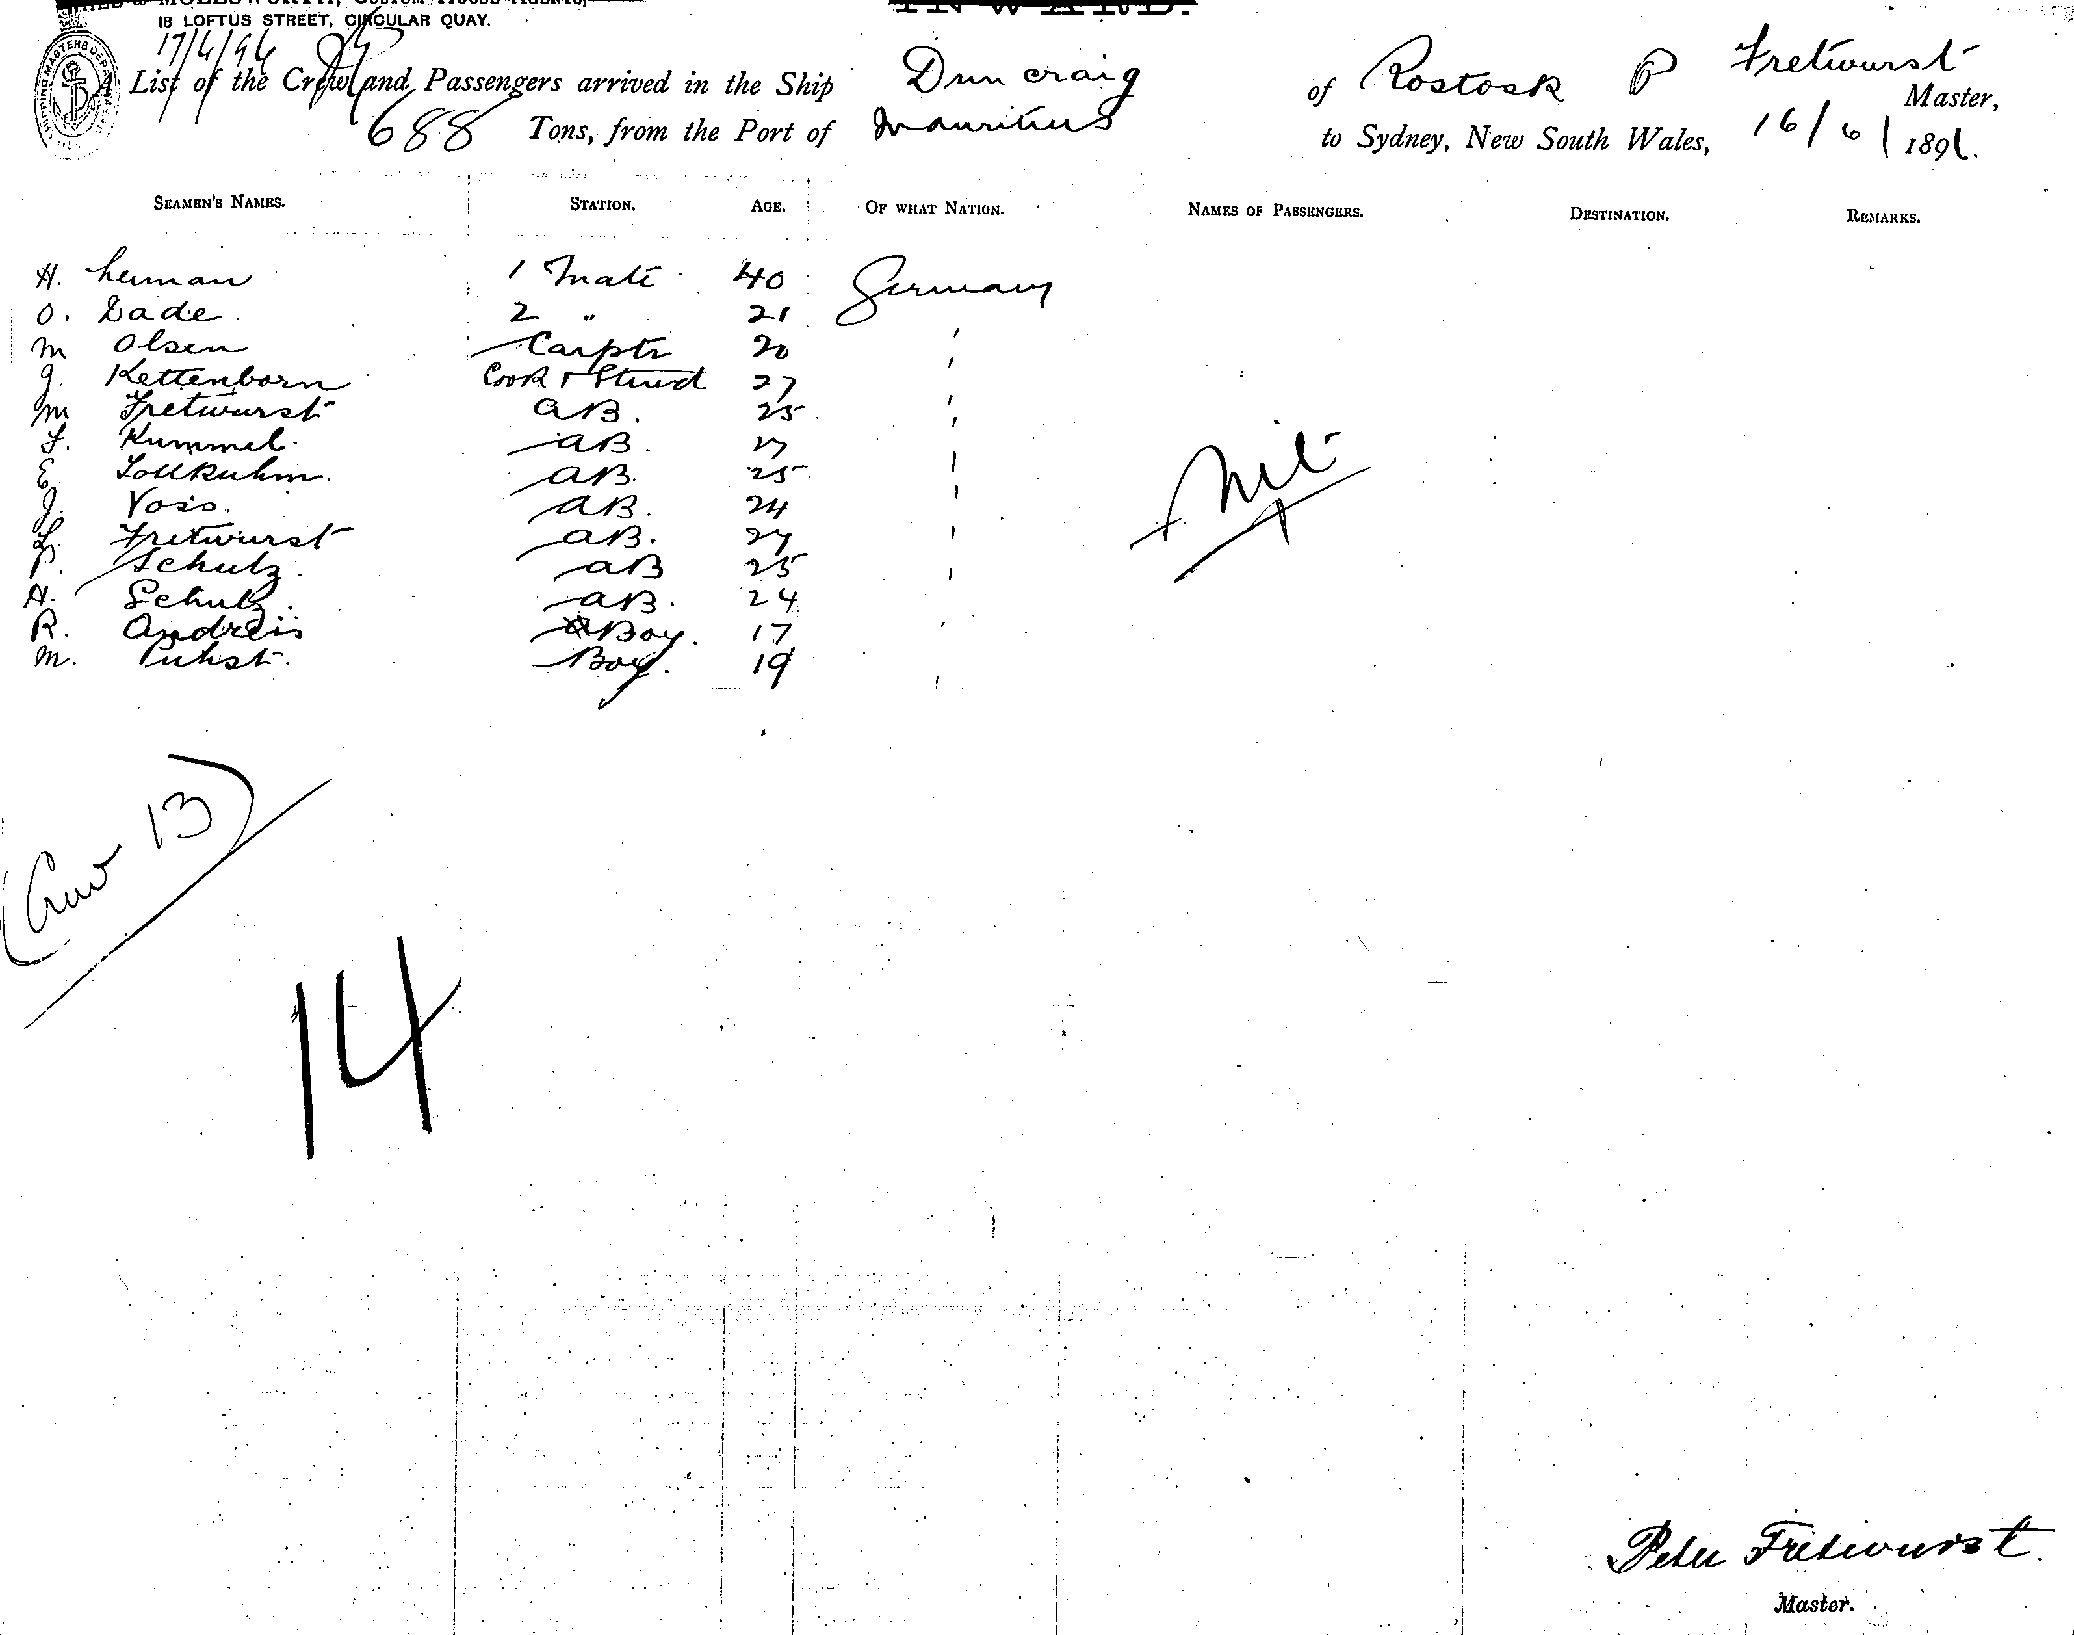 MOLESWORTH, CUSTOM HOUSE AGENTS,
18 LOFTUS STREET, CIRCULAR QUAY.
INWARD.
17/6/96
A List of the Crew and Passengers arrived in the Ship Duncraig of Rostock P Fretwurst Master,
688 Tons, from the Port of Mauritius to Sydney, New South Wales, 16/6/1896.
SEAMEN'S NAMES. STATION. AGE. OF WHAT NATION. NAMES OF PASSENGERS. DESTINATION. REMARKS.
H. 1 Mate 40 Germany
O. Dade 2 " 21
M Olsen Carptr 20 '
J. Kettenborn Cook & Stwd 27 '
M Fretwurst AB. 25 '
F. Kummel AB. 27 '
E. AB. 25 '
J. Voss. AB. 24 '
Fretwurst AB. 27 '
P. Schulz. AB 25 '
H. Schulz. AB. 24
R. Andreis Boy. 17 '
M. Boy. 19 '
Nil
(Crew 13)
14
Peter Fretwurst.
Master.